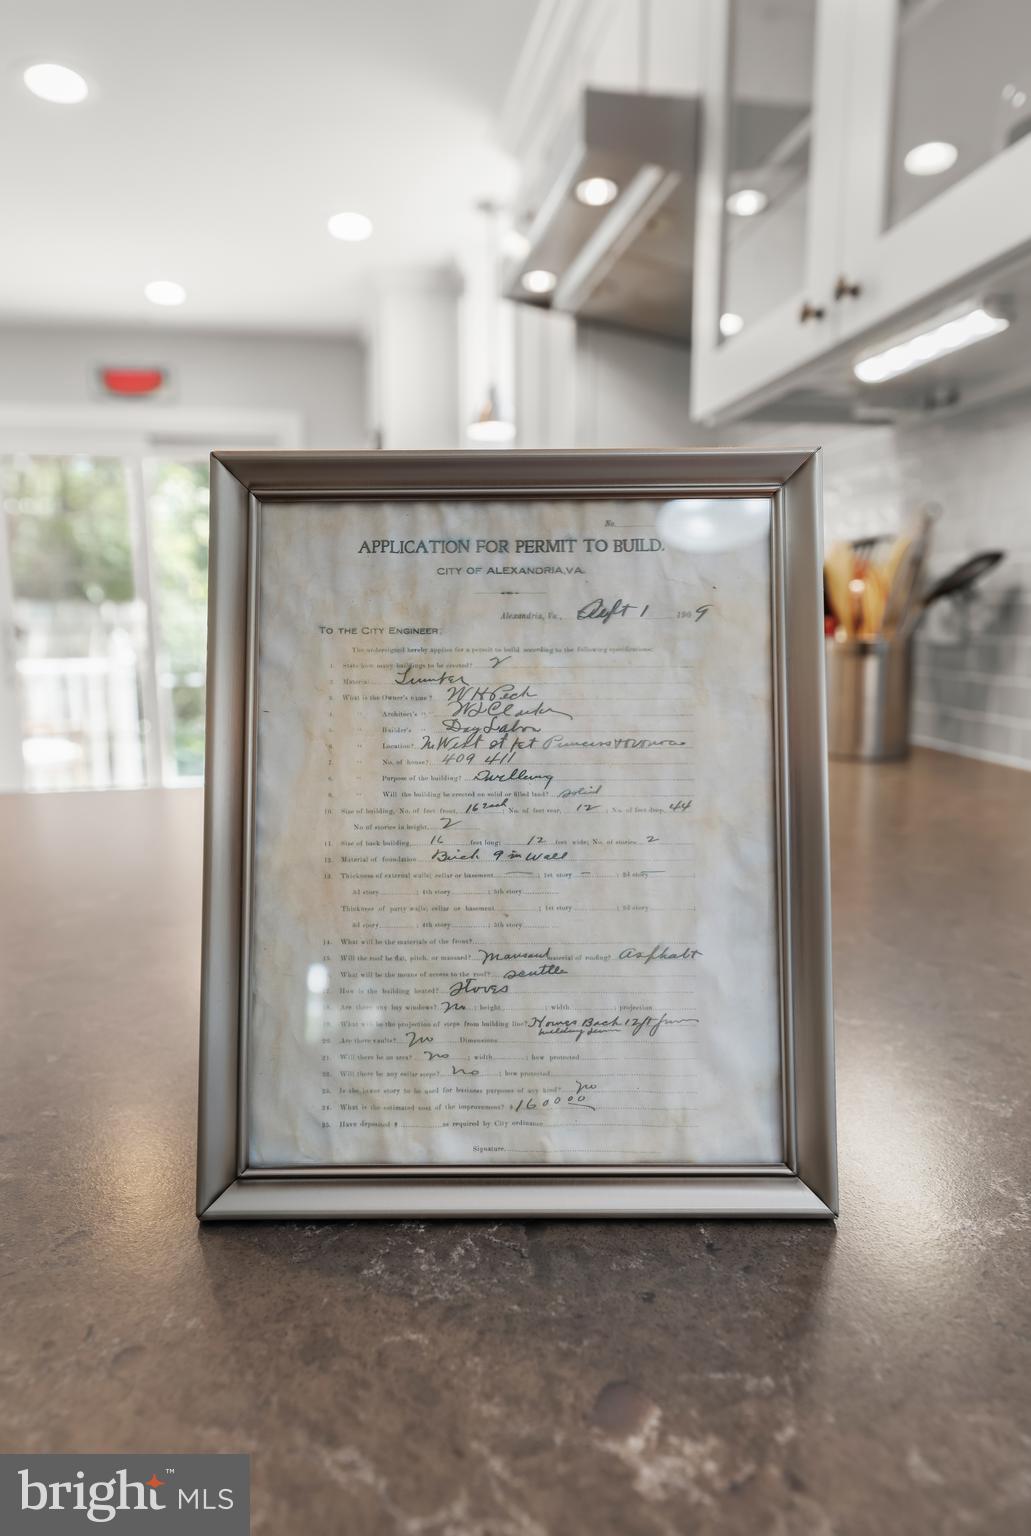 No.
APPLICATION FOR PERMIT TO BUILD.
CITY OF ALEXANDRIA, VA.
Alexandria, Va., Sept 1 1909
TO THE CITY ENGINEER:
The undersigned hereby applies for a permit to build according to the following specifications:
1. State how many buildings to be erected? 2
2. Material
3. What is the Owner's name? W H Peck
4. " Architect's " W L Clarke
5. " Builder's " Day Labor
6. " Location? N West St bet Princess & Oronoco
7. " No. of house? 409 411
8. " Purpose of the building? Dwelling
9. " Will the building be erected on solid or filled land? solid
10. Size of building, No. of feet front, 16 each; No. of feet rear, 12; No. of feet deep, 44
No of stories in height, 2
11. Size of back building, 16 feet long; 12 feet wide; No. of stories 2
12. Material of foundation Brick 9 in Wall
13. Thickness of external walls; cellar or basement ; 1st story ; 2d story ;
3d story ; 4th story ; 5th story
Thickness of party walls; cellar or basement ; 1st story ; 2d story
3d story ; 4th story ; 5th story
14. What will be the materials of the front?
15. Will the roof be flat, pitch, or mansard? Mansard material of roofing? Asphalt
What will be the means of access to the roof? scuttle
17. How is the building heated? Stoves
18. Are there any bay windows? No ; height ; width ; projection
19. What will be the projection of steps from building line? Houses Back 12 ft from
building line
20. Are there vaults? No Dimensions
21. Will there be an area? No ; width ; how protected
22. Will there be any cellar steps? No ; how protected
23. Is the lower story to be used for business purposes of any kind? No
24. What is the estimated cost of the improvement? $1600 00
25. Have deposited $ as required by City ordinance
Signature
bright™ MLS